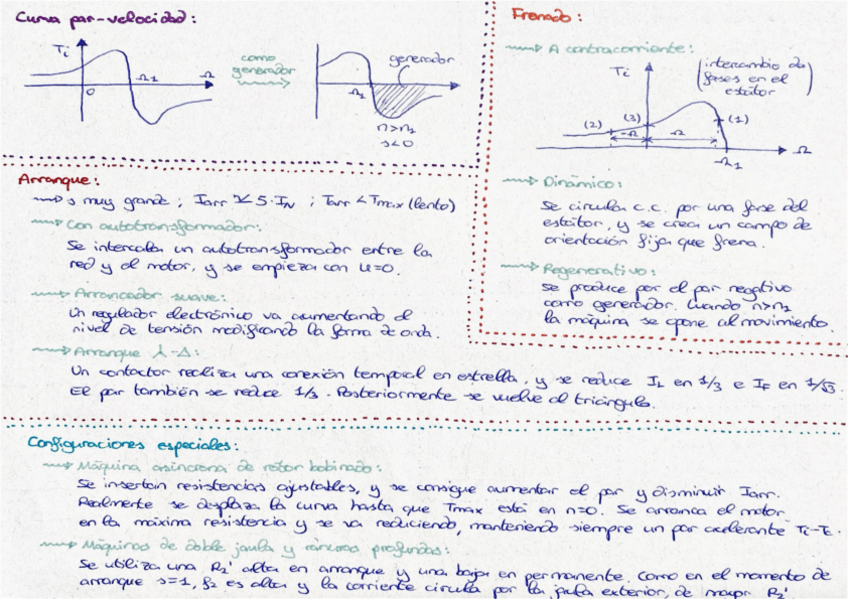 Curva par-velocidad:
Ti
Ω1
Ω
0
como
generador
generador
Ω1
n>n1
s<0
Arranque:
s muy grande ; Iarr ≃ 5·IN ; Tarr < Tmax (lento)
Con autotransformador:
Se intercala un autotransformador entre la
red y el motor, y se empieza con U=0.
Arrancador suave:
Un regulador electrónico va aumentando el
nivel de tensión modificando la forma de onda.
Arranque ⅄-Δ:
Un contactor realiza una conexión temporal en estrella, y se reduce IL en 1/3 e IF en 1/√3.
El par también se reduce 1/3. Posteriormente se vuelve al triángulo.
Frenado:
A contracorriente:
(intercambio de
fases en el
estátor)
Ti
(2)
(3)
(1)
-Ω
Ω
Ω1
Ω
Dinámico:
Se circula c.c. por una fase del
estátor, y se crea un campo de
orientación fija que frena.
Regenerativo:
Se produce por el par negativo
como generador. Cuando n>n1
la máquina se opone al movimiento.
Configuraciones especiales:
Máquina asíncrona de rotor bobinado:
Se insertan resistencias ajustables, y se consigue aumentar el par y disminuir Iarr.
Realmente se desplaza la curva hasta que Tmax está en n=0. Se arranca el motor
en la máxima resistencia y se va reduciendo, manteniendo siempre un par acelerante Ti-Tr.
Máquinas de doble jaula y ranuras profundas:
Se utiliza una R2' alta en arranque y una baja en permanente. Como en el momento de
arranque s=1, f2 es alta y la corriente circula por la jaula exterior, de mayor R2'.